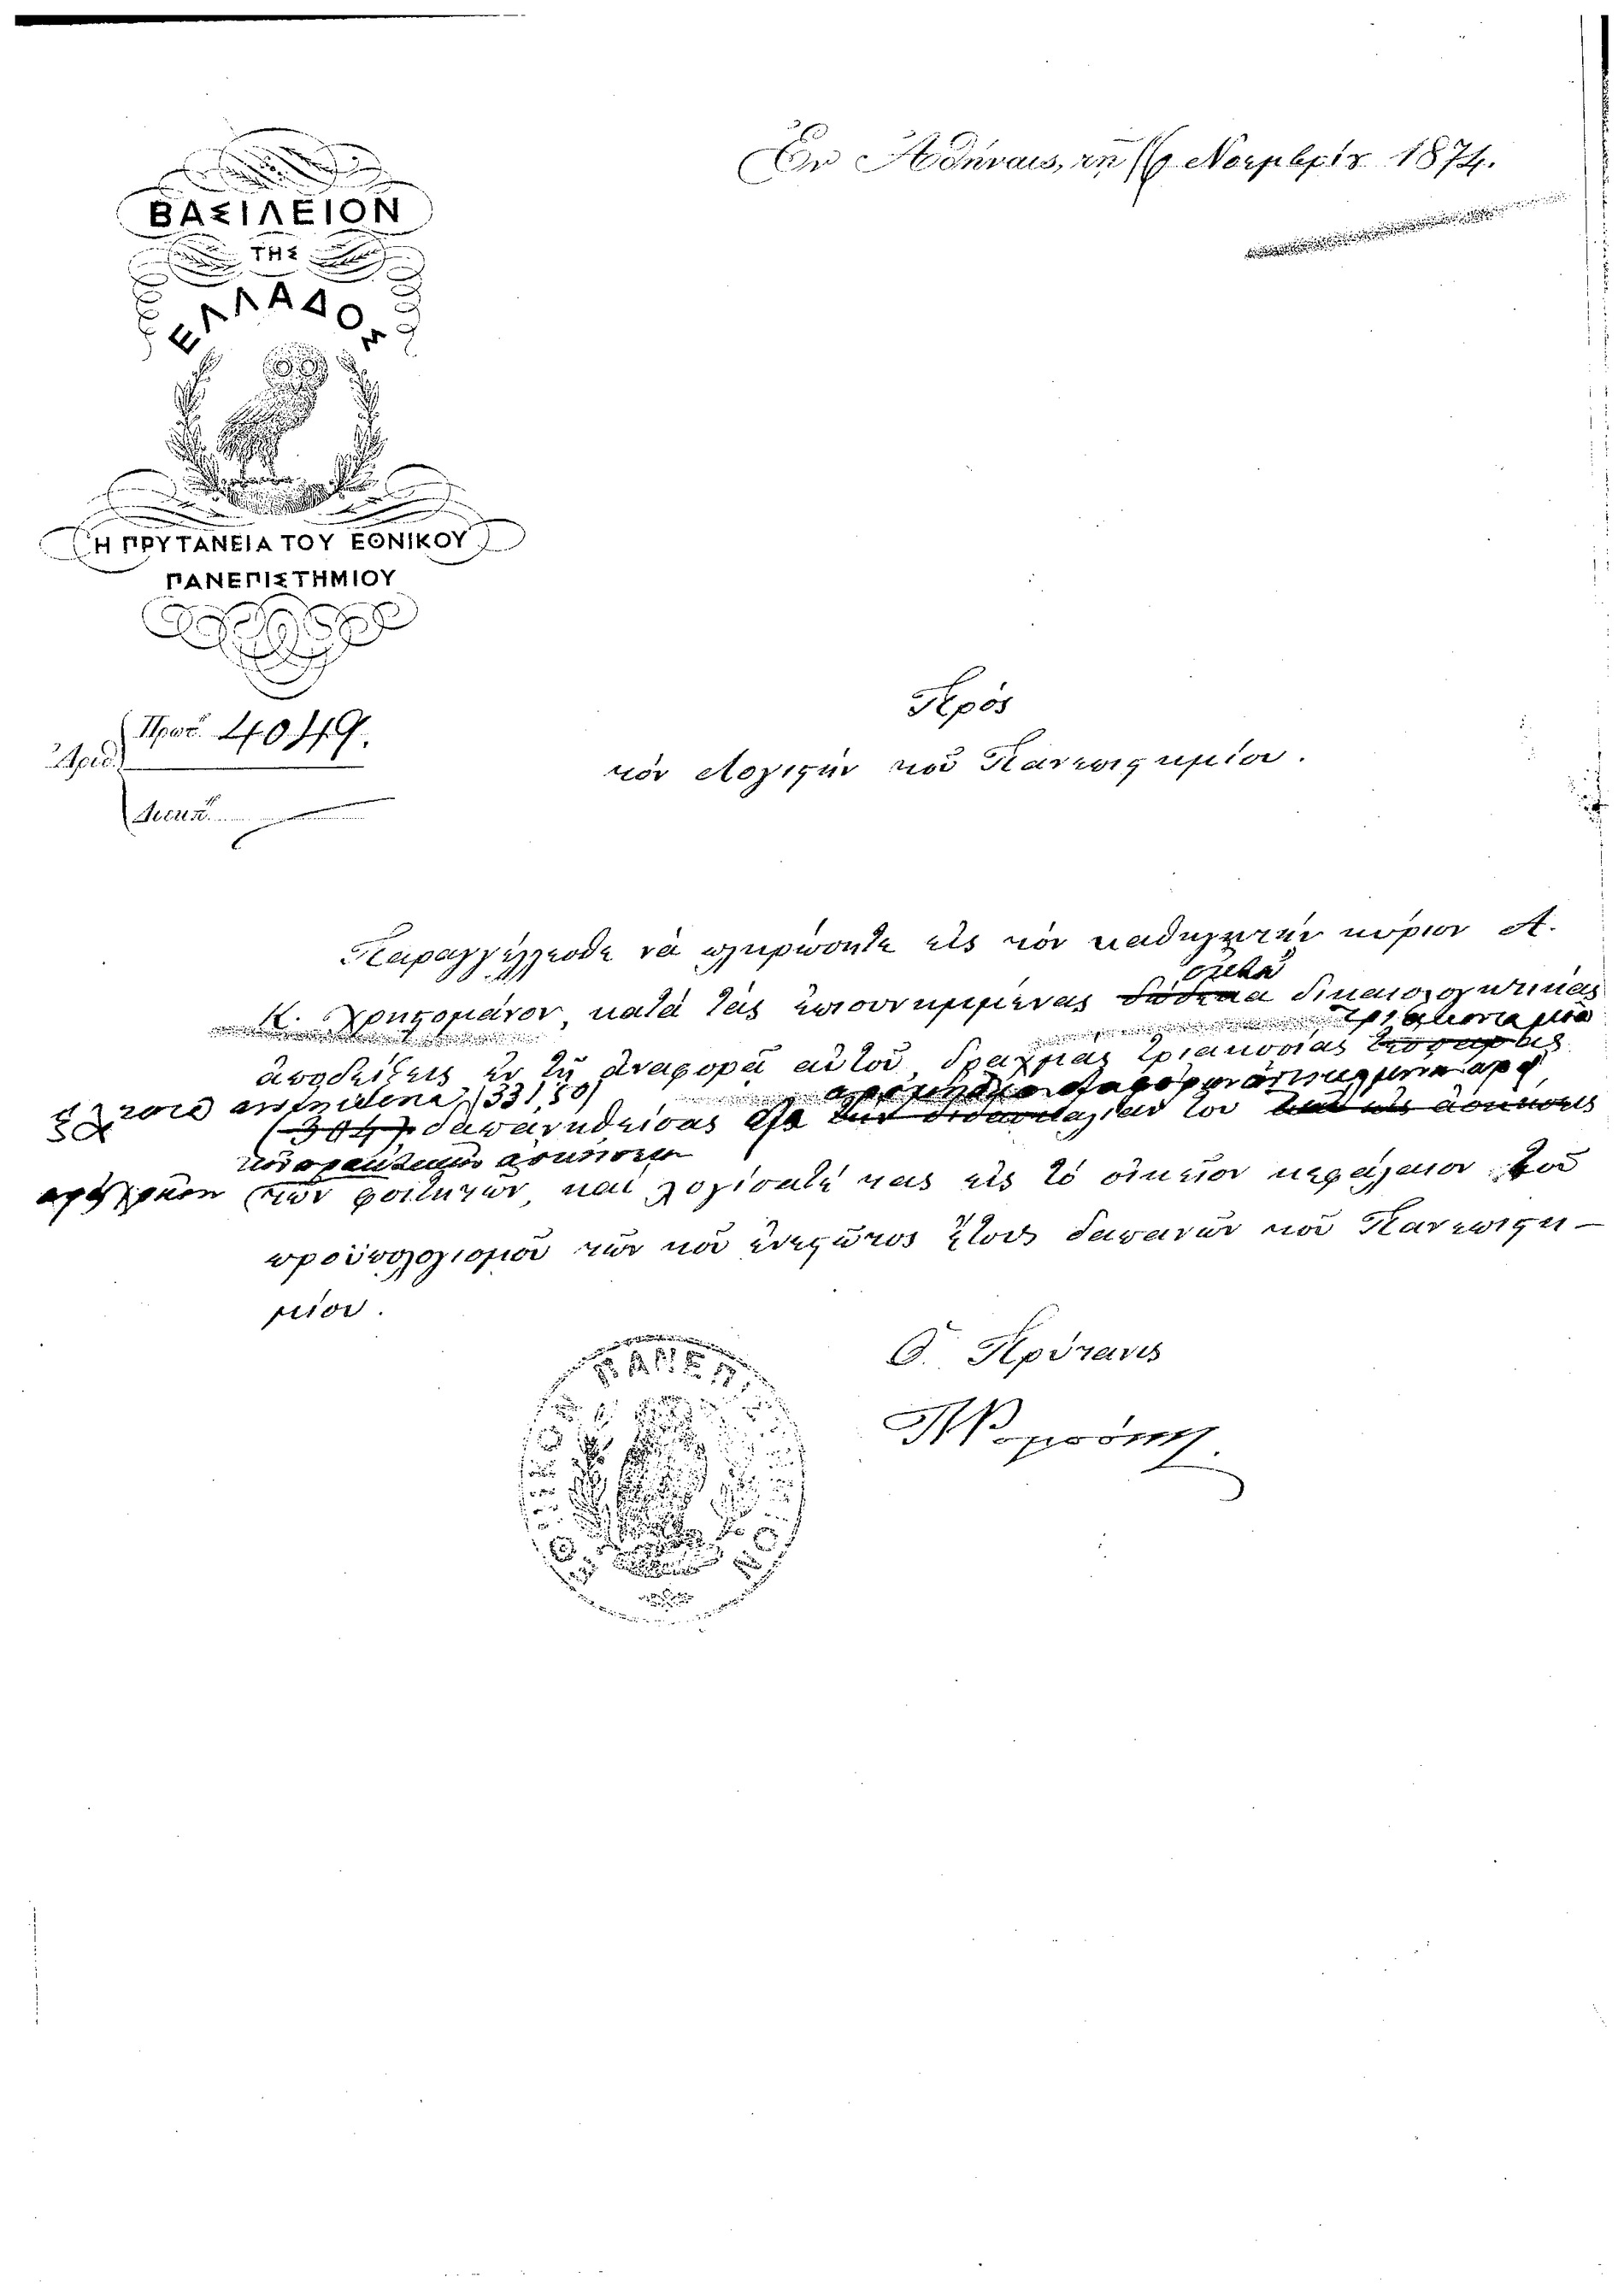 Ἐν Ἀθήναις, τῇ 16 Νοεμβρίου 1874.
ΒΑΣΙΛΕΙΟΝ
ΤΗΣ
ΕΛΛΑΔΟΣ
Η ΠΡΥΤΑΝΕΙΑ ΤΟΥ ΕΘΝΙΚΟΥ
ΠΑΝΕΠΙΣΤΗΜΙΟΥ
Ἀριθ.
Πρωτ. 4049.
Διεκπ.
Πρὸς
τὸν Λογιστὴν τοῦ Πανεπιστημίου.
Παραγγέλλεσθε νὰ πληρώσητε εἰς τὸν καθηγητὴν κύριον Α.
ὀκτὼ
Κ. Χρηστομάνον, κατὰ τὰς ἐπισυνημμένας δώδεκα δικαιολογητικὰς
τριάκοντα μία
ἀποδείξεις ἐν τῇ ἀναφορᾷ αὐτοῦ, δραχμὰς τριακοσίας τέσσαρας
(331,50)
(304) δαπανηθείσας διὰ τὴν διδασκαλίαν του καὶ τὰς ἀσκήσεις
ἀσκήσεων
τῶν φοιτητῶν, καὶ λογίσατέ τας εἰς τὸ οἰκεῖον κεφάλαιον τοῦ
προϋπολογισμοῦ τῶν τοῦ ἐνεστῶτος ἔτους δαπανῶν τοῦ Πανεπιστη-
μίου.
Ὁ Πρύτανις
ΠΑΝΕΠ